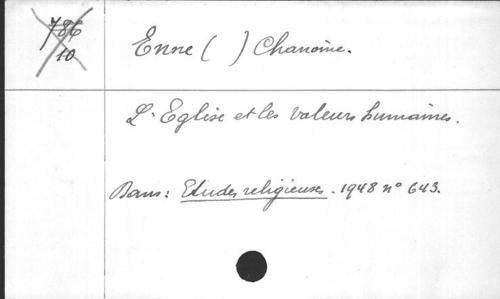 786
10
Enne ( ) Chanoine.
L'Eglise et les valeurs humaines.
Dans: Etudes religieuses. 1948 n° 643.